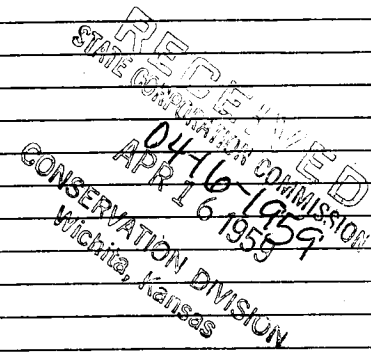 RECEIVED
STATE CORPORATION COMMISSION
04-16-1959
APR 16 1959
CONSERVATION DIVISION
Wichita, Kansas